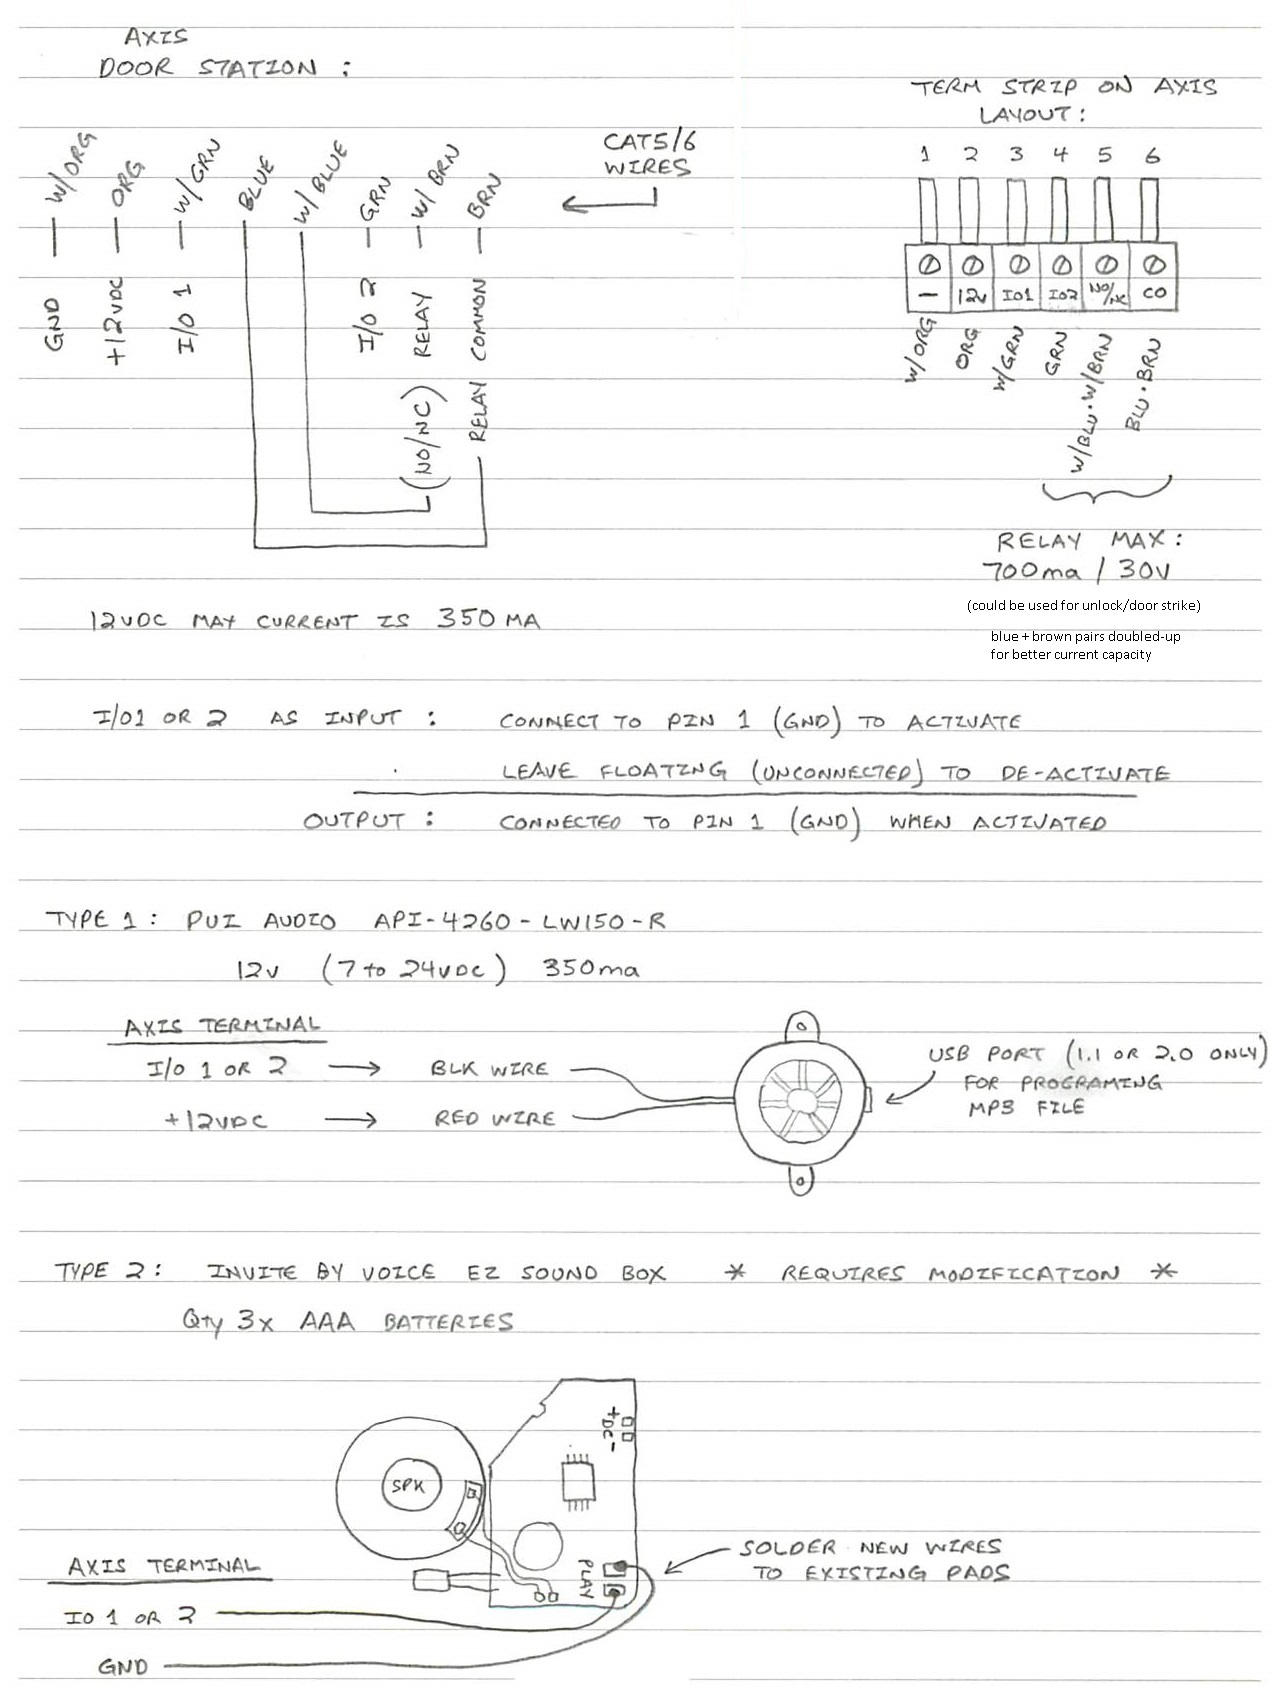 AXIS
DOOR STATION :
W/ORG
ORG
W/GRN
BLUE
W/BLUE
GRN
W/BRN
BRN
CAT5/6
WIRES
GND
+12VDC
I/O 1
I/O 2
(NO/NC) RELAY
RELAY COMMON
TERM STRIP ON AXIS
LAYOUT :
1 2 3 4 5 6
— 12V IO1 IO2 NO/NC CO
W/ORG
ORG
W/GRN
GRN
W/BLU · W/BRN
BLU · BRN
RELAY MAX :
700ma / 30V
(could be used for unlock/door strike)
blue + brown pairs doubled-up
for better current capacity
12VDC MAX CURRENT IS 350 MA
I/O1 OR 2 AS INPUT : CONNECT TO PIN 1 (GND) TO ACTIVATE
LEAVE FLOATING (UNCONNECTED) TO DE-ACTIVATE
OUTPUT : CONNECTED TO PIN 1 (GND) WHEN ACTIVATED
TYPE 1 : PUI AUDIO API-4260-LW150-R
12V (7 to 24VDC) 350ma
AXIS TERMINAL
I/O 1 OR 2 → BLK WIRE
+12VDC → RED WIRE
USB PORT (1.1 OR 2.0 ONLY)
FOR PROGRAMING
MP3 FILE
TYPE 2 : INVITE BY VOICE EZ SOUND BOX * REQUIRES MODIFICATION *
Qty 3x AAA BATTERIES
+ DC -
SPK
PLAY
SOLDER NEW WIRES
TO EXISTING PADS
AXIS TERMINAL
IO 1 OR 2
GND